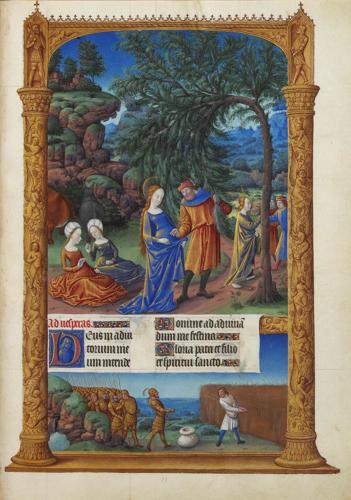 Ad uesperas.
Deus in adiu
torium me
um intende
Domine ad adiuuan
dum me festina
Gloria patri et filio
et spiritui sancto